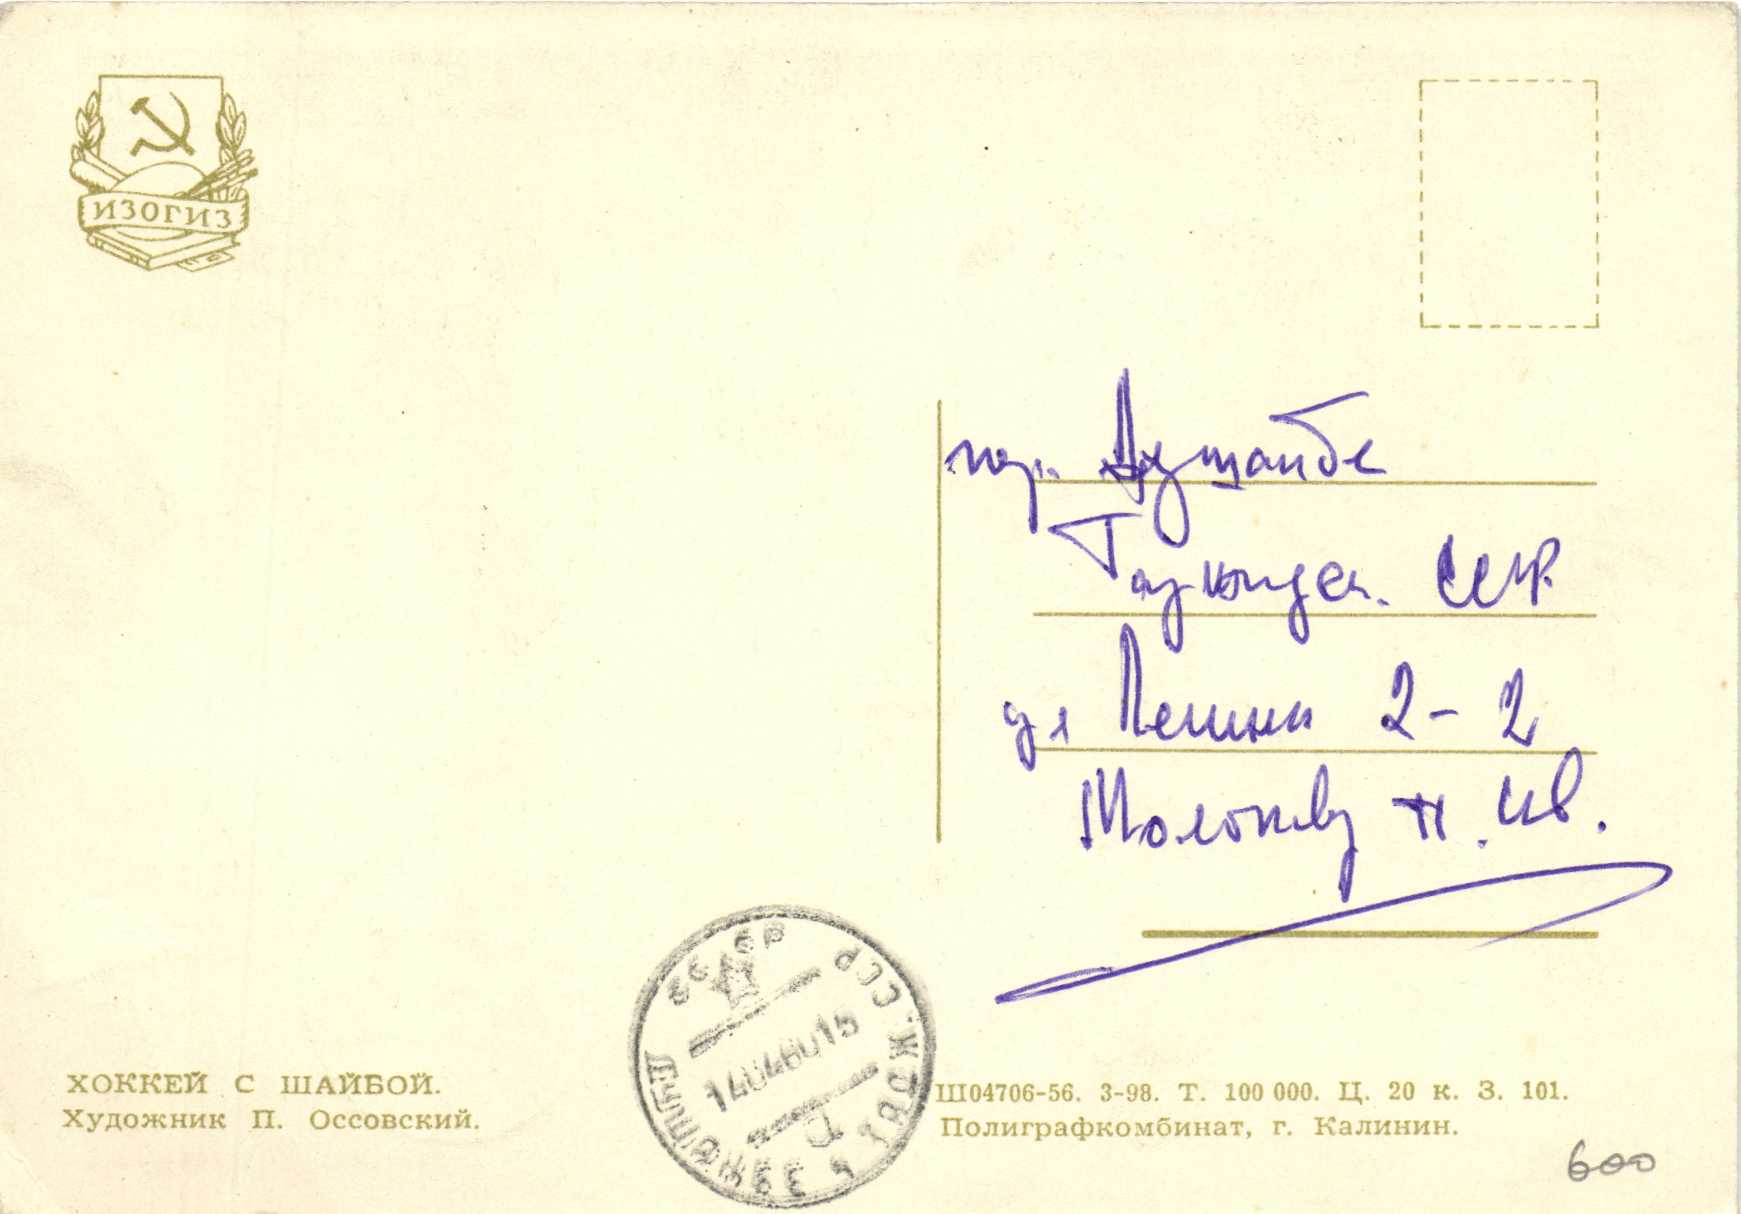 ИЗОГИЗ
гор. Душанбе
Таджикск. ССР
ул Ленина 2-2
Н. Ив.
ХОККЕЙ С ШАЙБОЙ.
Художник П. Оссовский.
Ш04706-56. 3-98. Т. 100 000. Ц. 20 к. З. 101.
Полиграфкомбинат, г. Калинин.
600